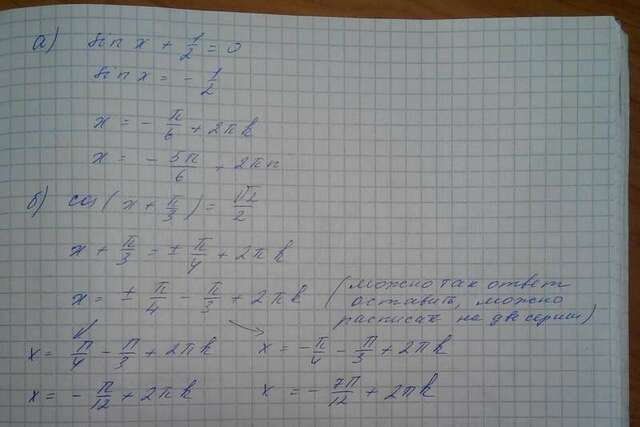 а) sin x + 1/2 = 0
sin x = - 1/2
x = - π/6 + 2πk
x = - 5π/6 + 2πn
б) cos(x + π/3) = √2/2
x + π/3 = ± π/4 + 2πk
x = ± π/4 - π/3 + 2πk (можно так ответ
оставить, можно
расписать на две серии)
x = π/4 - π/3 + 2πk x = - π/4 - π/3 + 2πk
x = - π/12 + 2πk x = - 7π/12 + 2πk